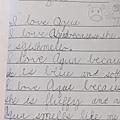 I love Agua
I love Agua because she
is
I love Agua because
is blue and soft
I love Agua because
she is fluffy and
Agua smells like